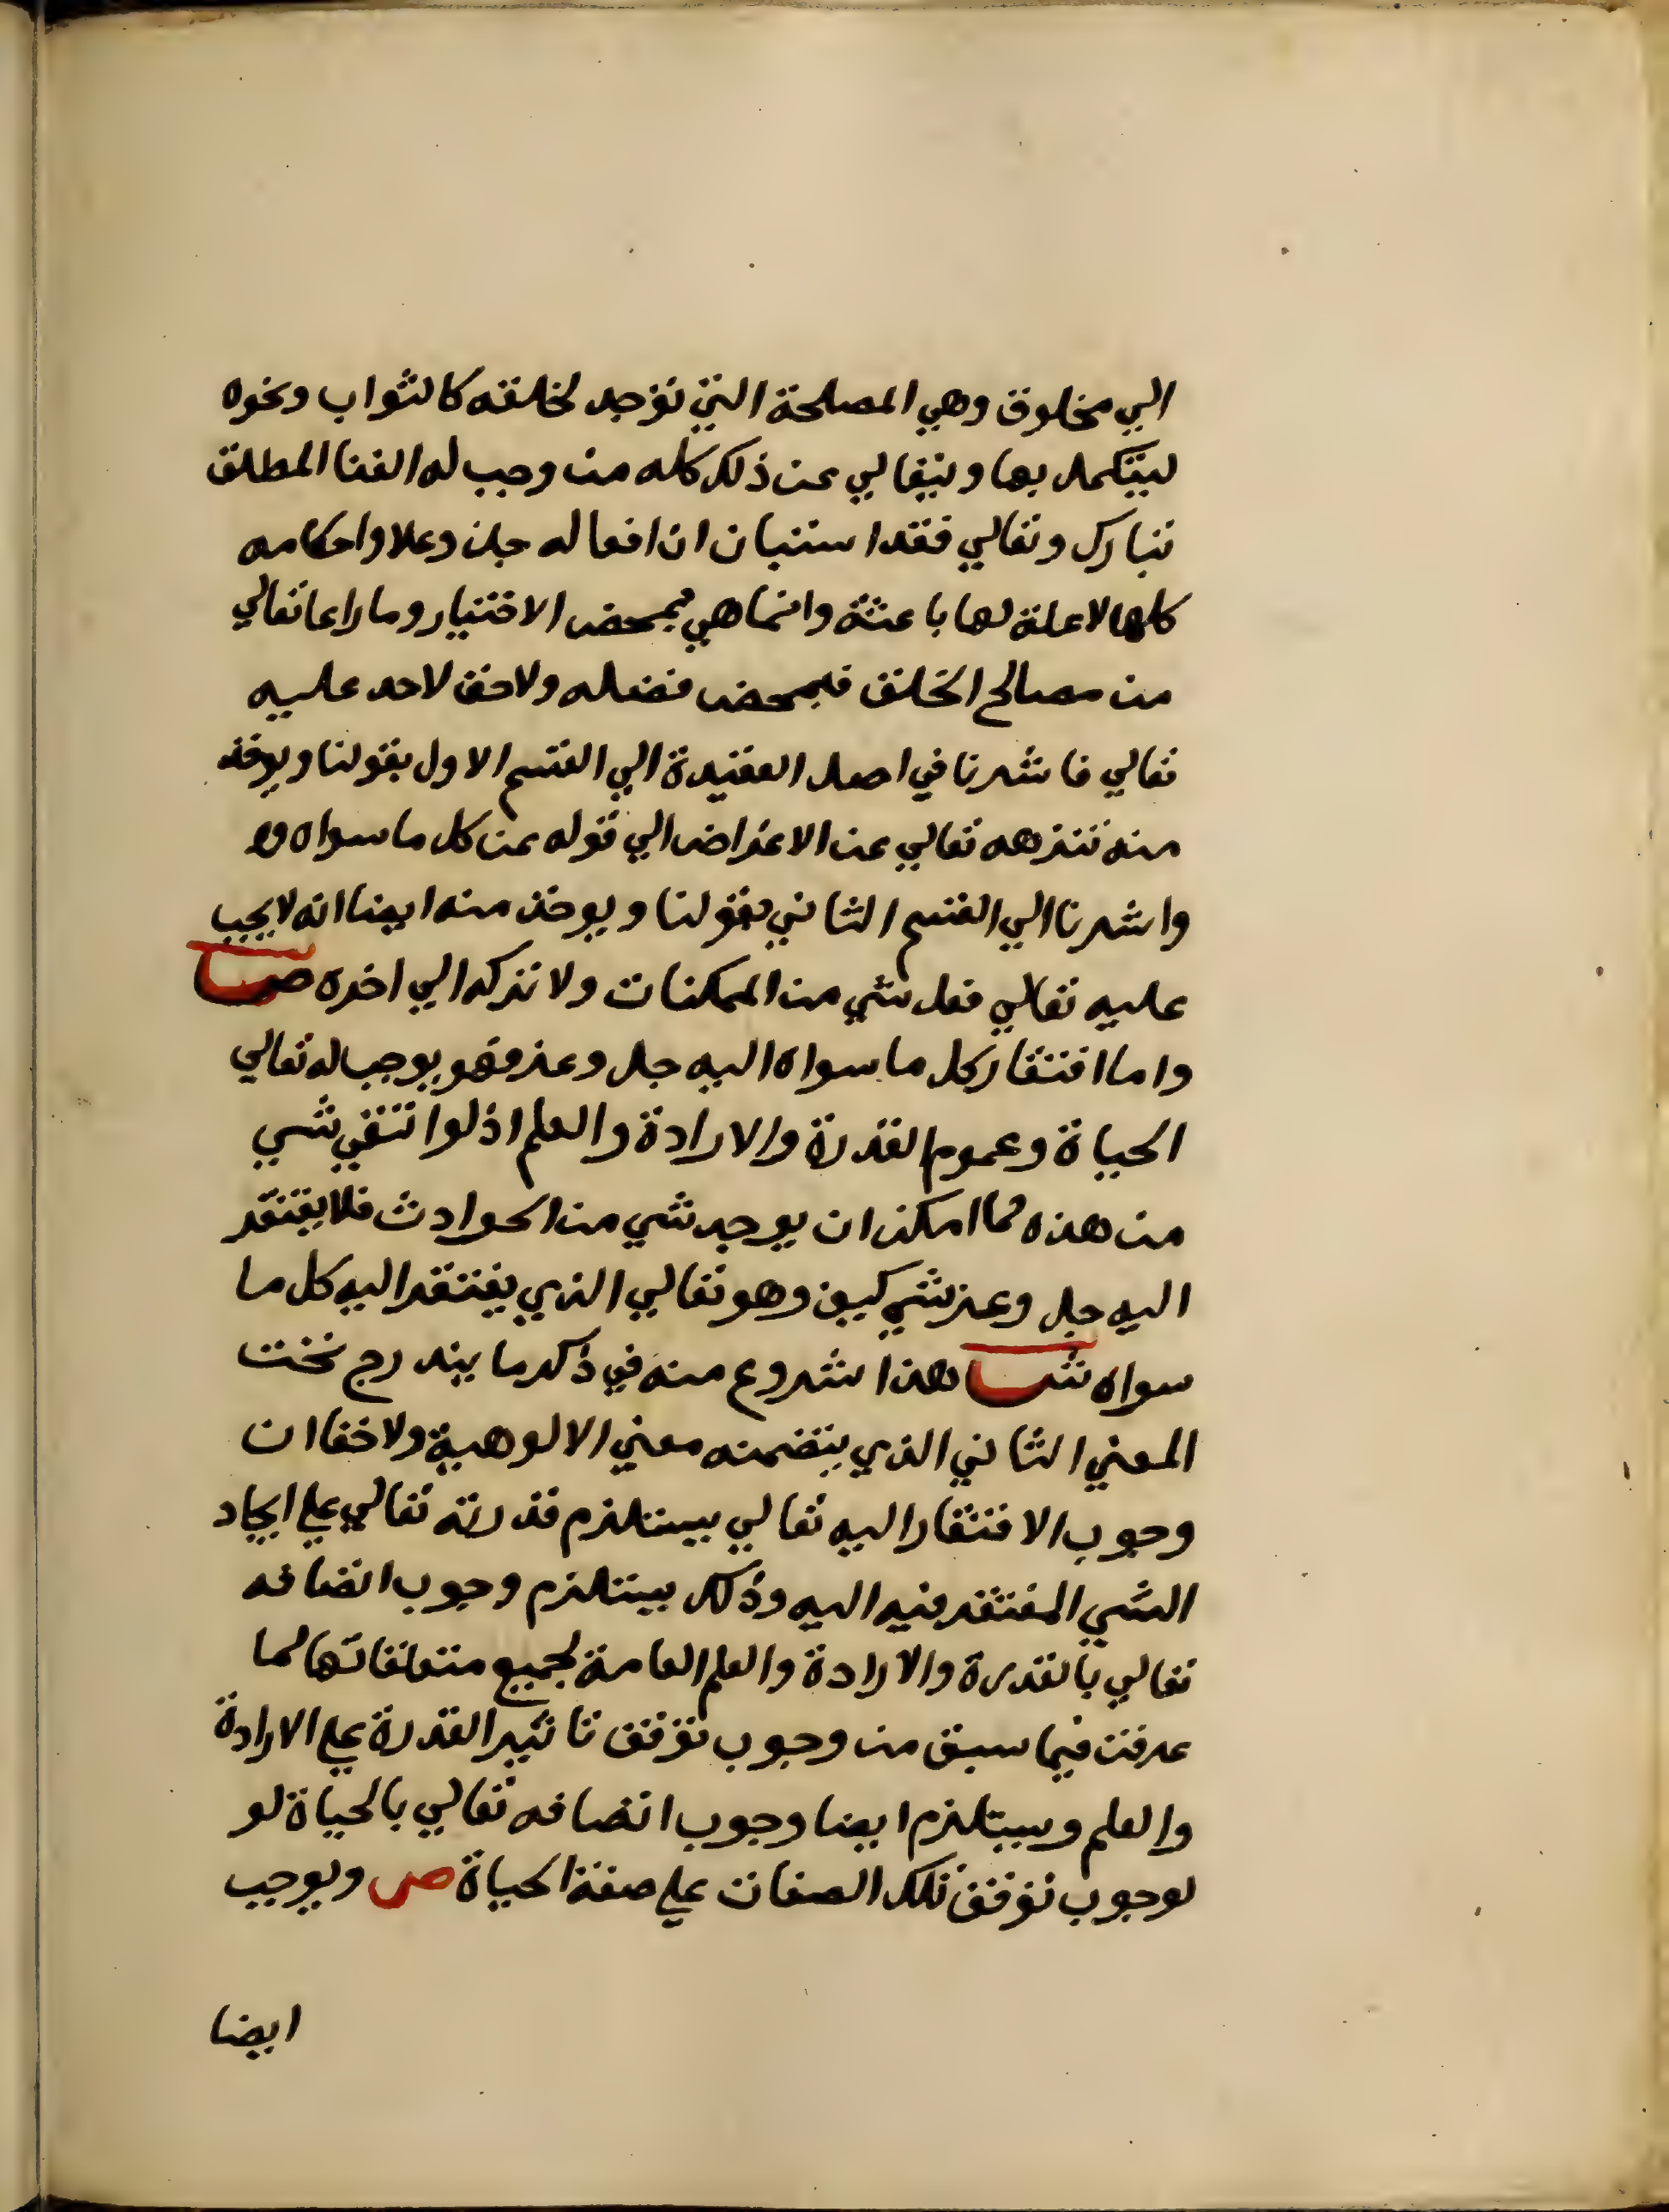 الي مخلوق وهي المصلحة التي توجد لخلقه كالثواب ونحوه
ليتكمل بها ويتعالي عن ذلك كله من وجب له الغنا المطلق
تبارك وتعالي فقد استبان ان افعاله جل وعلا واحكامه
كلها لا علة لها باعثة وانما هي بمحض الاختيار وما راعا تعالي
من مصالح الخلق فبمحض فضله ولا حق لاحد عليه
تعالي فاشرنا في اصل العقيدة الي القسم الاول بقولنا ويوخذ
منه تنزهه تعالي عن الاغراض الي قوله عن كل ما سواه
واشرنا الي القسم الثاني بقولنا ويوخذ منه ايضا انه لا يجب
عليه تعالي فعل شي من الممكنات ولا تركه الي اخره ص
واما افتقار كل ما سواه اليه جل وعز فهو يوجب له تعالي
الحياة وعموم القدرة والارادة والعلم اذ لو انتفي شي
من هذه لما امكن ان يوجد شي من الحوادث فلا يفتقر
اليه جل وعز شي كيف وهو تعالي الذي يفتقر اليه كل ما
سواه ش هذا شروع منه في ذكر ما يندرج تحت
المعني الثاني الذي يتضمنه معني الالوهية ولا خفا ان
وجوب الافتقار اليه تعالي يستلزم قدرته تعالي علي ايجاد
الشي المفتقر فيه اليه وذلك يستلزم وجوب اتصافه
تعالي بالقدرة والارادة والعلم العامة لجميع متعلقاتها لما
عرفت فيما سبق من وجوب توقف تاثير القدرة علي الارادة
والعلم ويستلزم ايضا وجوب اتصافه تعالي بالحياة لو
لوجوب توقف تلك الصفات علي صفة الحياة ص ويوجب
ايضا